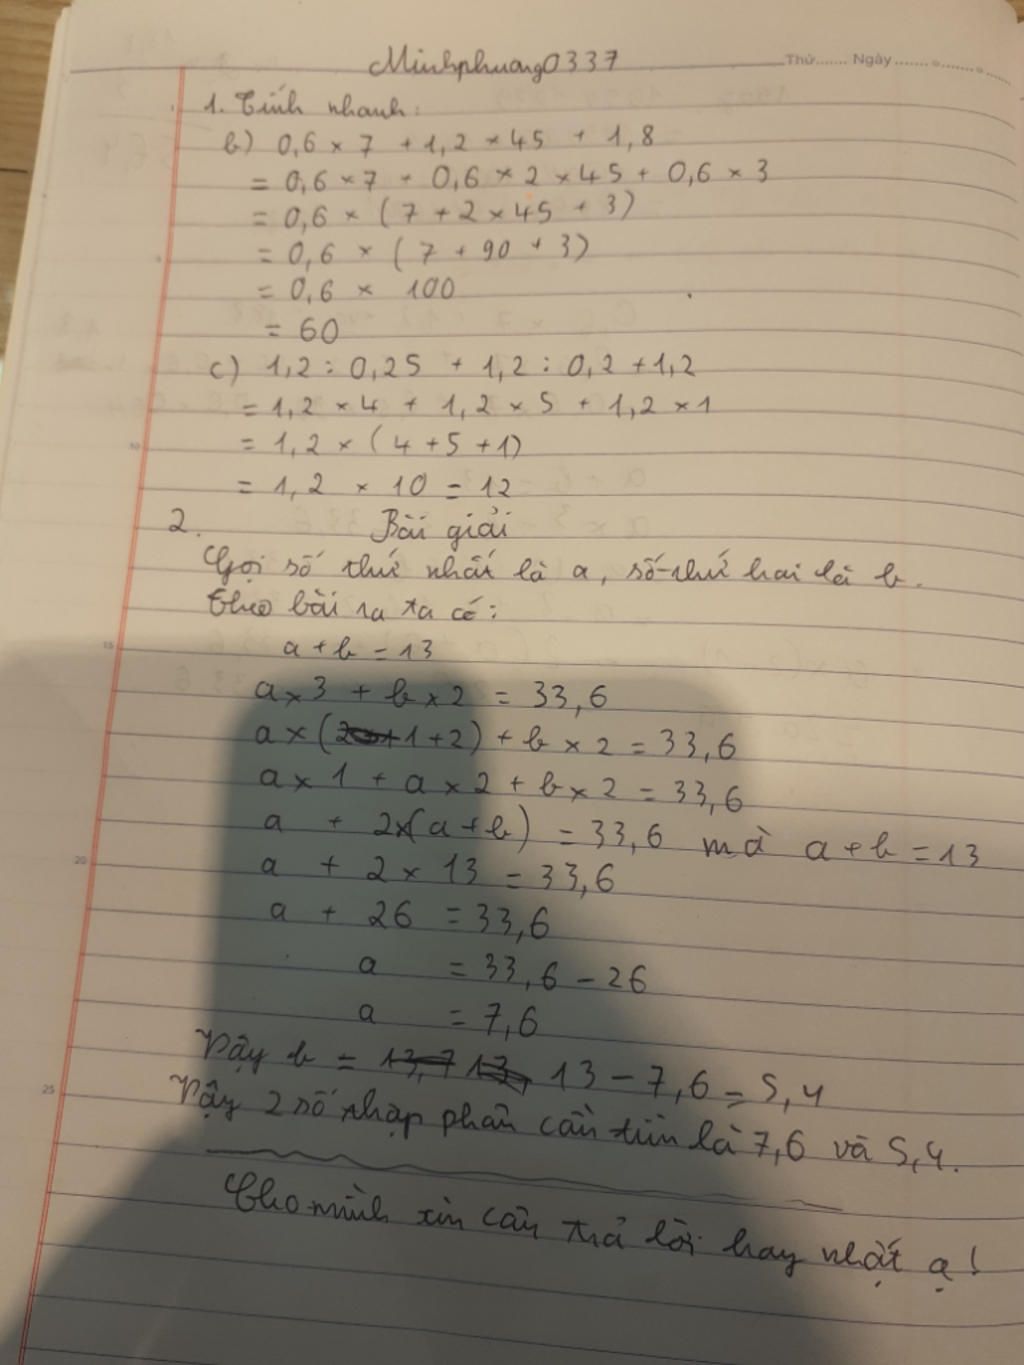 Minhphuong0337
Thứ...... Ngày
1. Tính nhanh:
b) 0,6 × 7 + 1,2 × 45 + 1,8
= 0,6 × 7 + 0,6 × 2 × 45 + 0,6 × 3
= 0,6 × ( 7 + 2 × 45 + 3)
= 0,6 × ( 7 + 90 + 3)
= 0,6 × 100
= 60
c) 1,2 : 0,25 + 1,2 : 0,2 + 1,2
= 1,2 × 4 + 1,2 × 5 + 1,2 × 1
= 1,2 × ( 4 + 5 + 1)
10
= 1,2 × 10 = 12
2. Bài giải
Gọi số thứ nhất là a, số thứ hai là b.
Theo bài ra ta có:
15
a + b = 13
a × 3 + b × 2 = 33,6
a × (1 + 2) + b × 2 = 33,6
a × 1 + a × 2 + b × 2 = 33,6
a + 2×(a + b) = 33,6 mà a + b = 13
20
a + 2 × 13 = 33,6
a + 26 = 33,6
a = 33,6 - 26
a = 7,6
Vậy b = 13,7 13, 13 - 7,6 = 5,4
25
Vậy 2 số thập phân cần tìm là 7,6 và 5,4.
Cho mình xin câu trả lời hay nhất ạ!